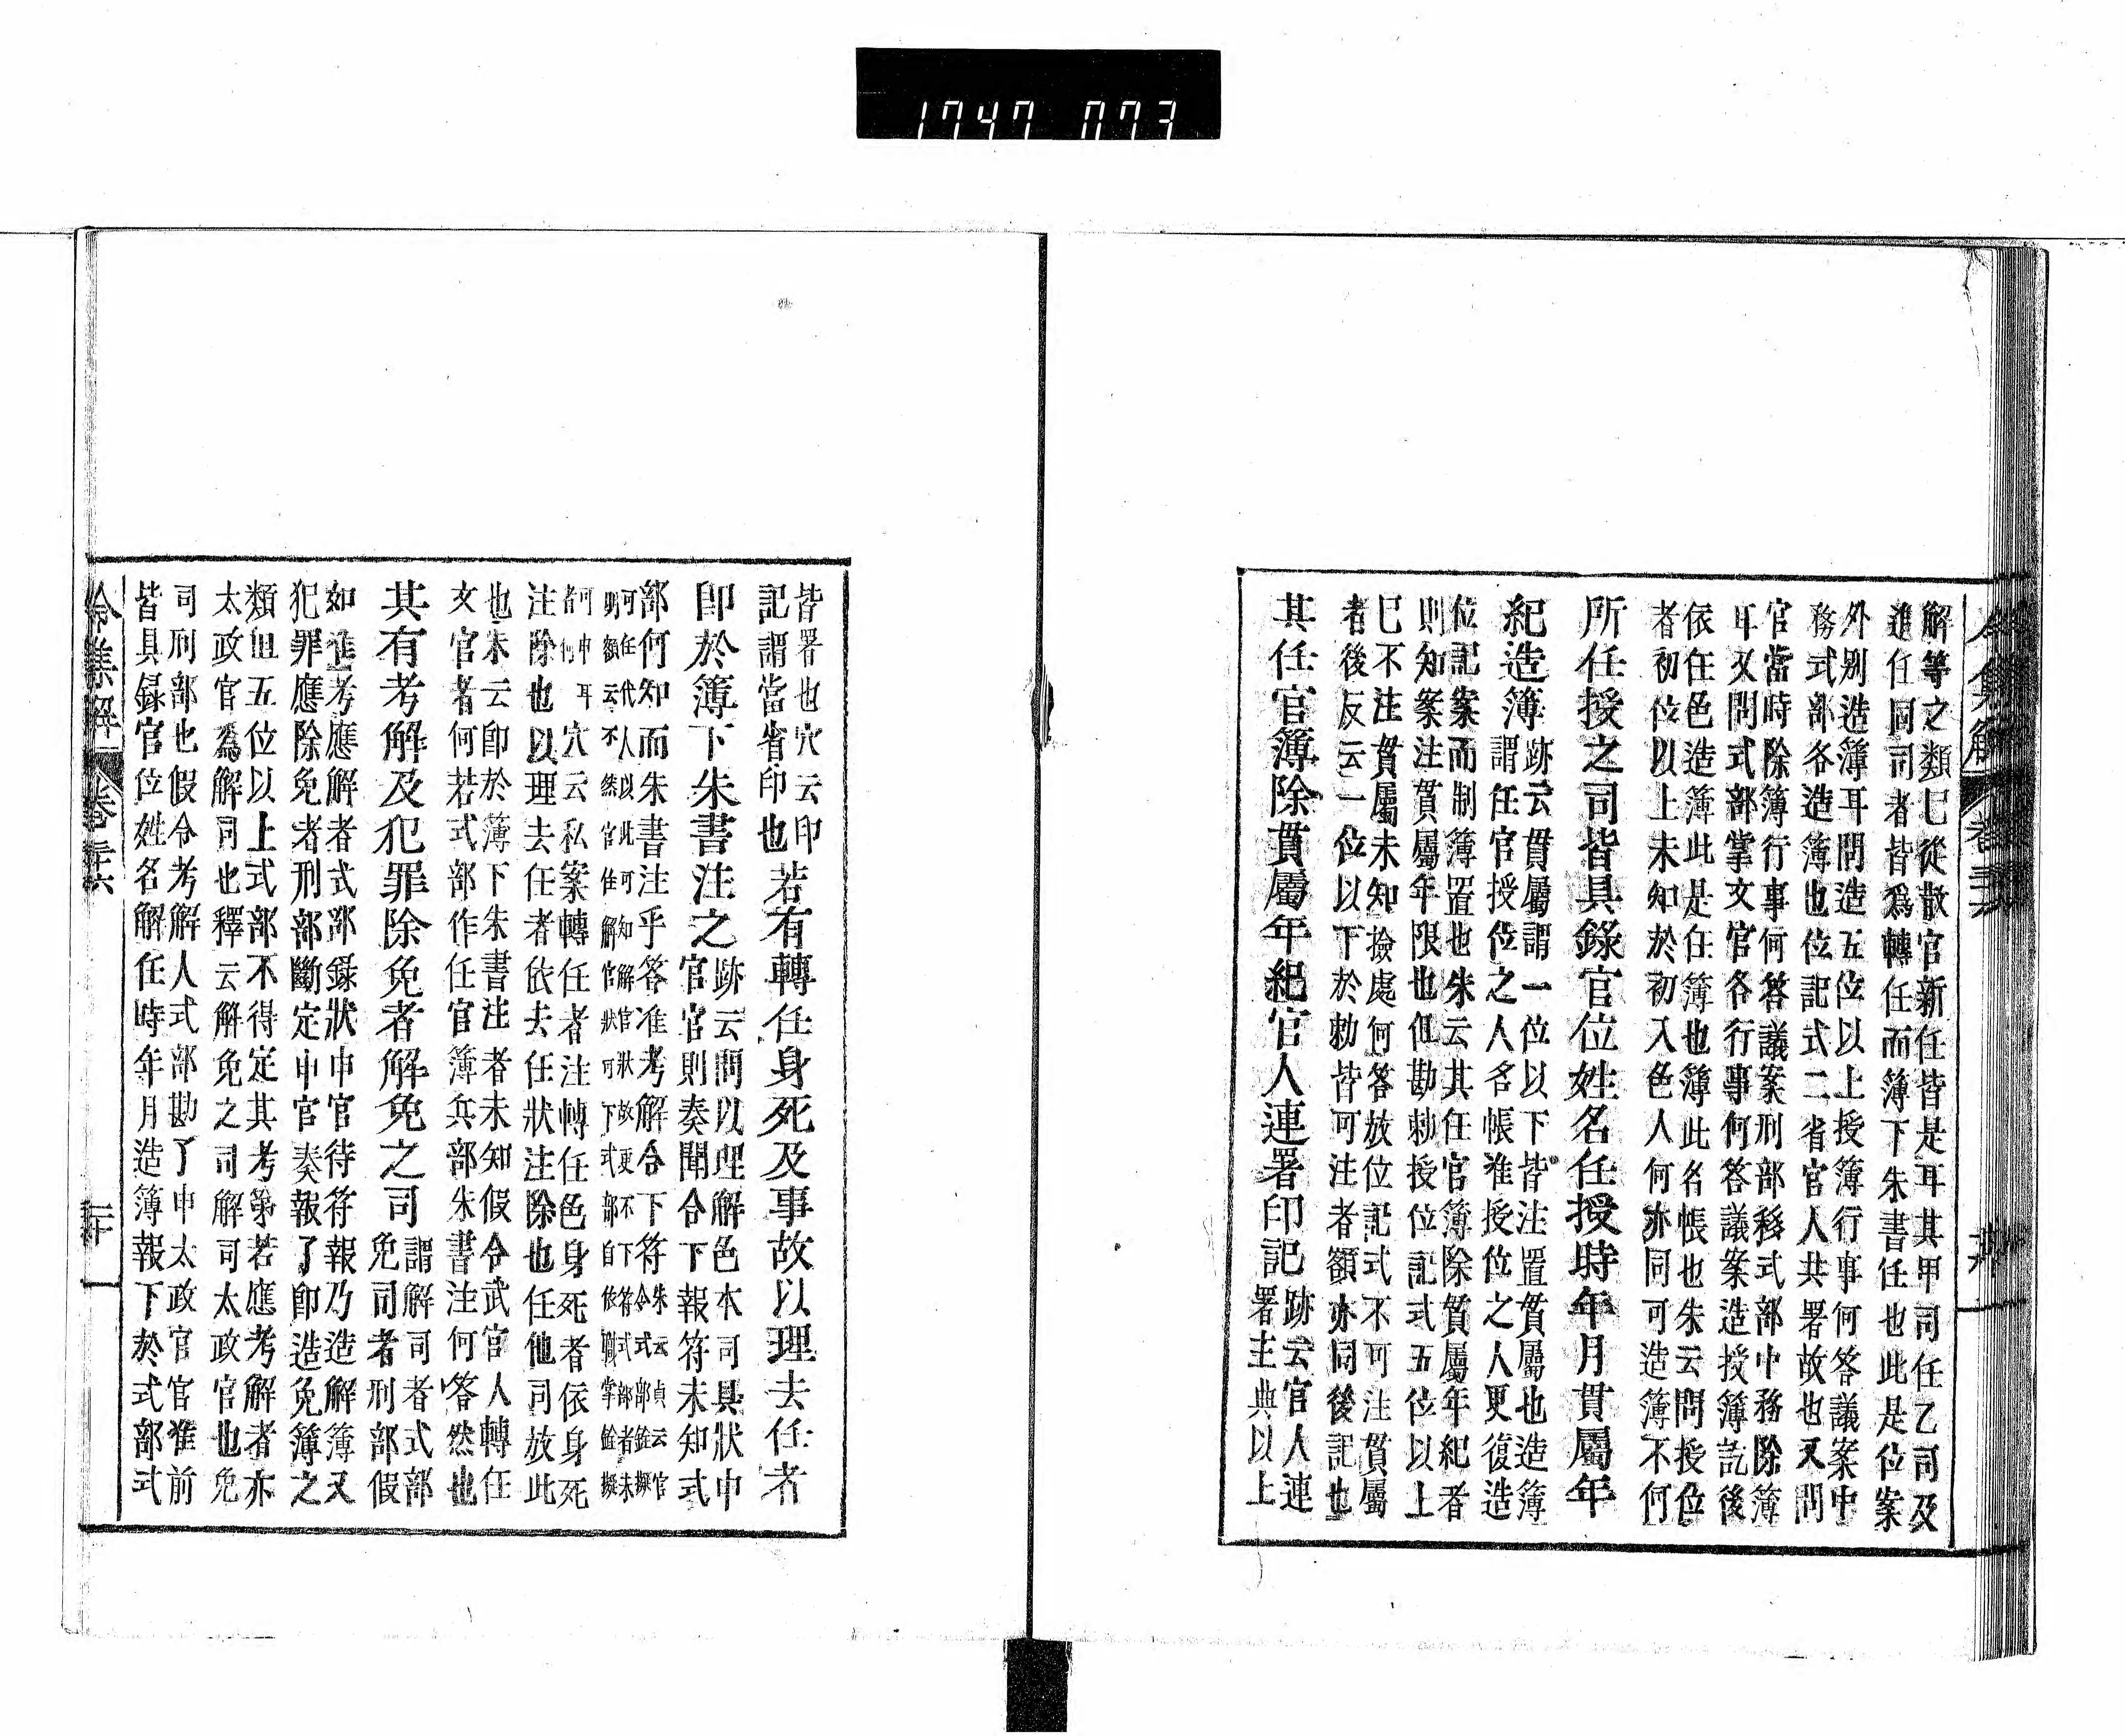 1747 073
解等之類已從散官新任皆是耳其甲司任乙司及
進任同司者皆爲轉任而簿下朱書任也此是位案
外別造簿耳問造五位以上授簿行事何答議案中
務式部各造簿也位記式二省官人共署故也又問
官當時除簿行事何答議案刑部移式部中務除簿
耳又問式部掌文官各行事何答議案造授簿訖後
依任色造簿此是任簿也簿此名帳也朱云問授位
者初位以上未知於初入色人何亦同可造簿不何
所任授之司皆具錄官位姓名任授時年月貫屬年
紀造簿
跡云貫屬謂一位以下皆注置貫屬也造簿
謂任官授位之人名帳准授位之人更復造
位記案而制簿置也朱云其任官簿除貫屬年紀者
則知案注貫屬年限也但勘勅授位記式五位以上
已不注貫屬未知撿處何答放位記式不可注貫屬
者後反云一位以下於勅皆可注者額亦同後記也
其任官簿除貫屬年紀官人連署印記
跡云官人連
署主典以上
皆署也穴云印
記謂當省印也
若有轉任身死及事故以理去任者
即於簿下朱書注之
跡云問以理解色本司具狀申
官官則奏聞合下報符未知式
部何知而朱書注乎答准考解合下符
朱云貞云官
令式部銓擬
可任代人以此可知解官狀故更不下符式部者未
明額云不然官任解官狀可下式部自依職掌銓擬
可申耳
者何
穴云私案轉任者注轉任色身死者依身死
注除也以理去任者依去任狀注除也任他司放此
也朱云即於簿下朱書注者未知假令武官人轉任
文官者何若式部作任官簿兵部朱書注何答然也
其有考解及犯罪除免者解免之司
謂解司者式部
免司者刑部假
如進考應解者式部錄狀申官待符報乃造解簿又
犯罪應除免者刑部斷定申官奏報了即造免簿之
類但五位以上式部不得定其考第若應考解者亦
太政官爲解司也釋云解免之司解司太政官也免
司刑部也假令考解人式部勘了申太政官官准前
皆具録官位姓名解任時年月造簿報下於式部式
令集解 卷三六 三十